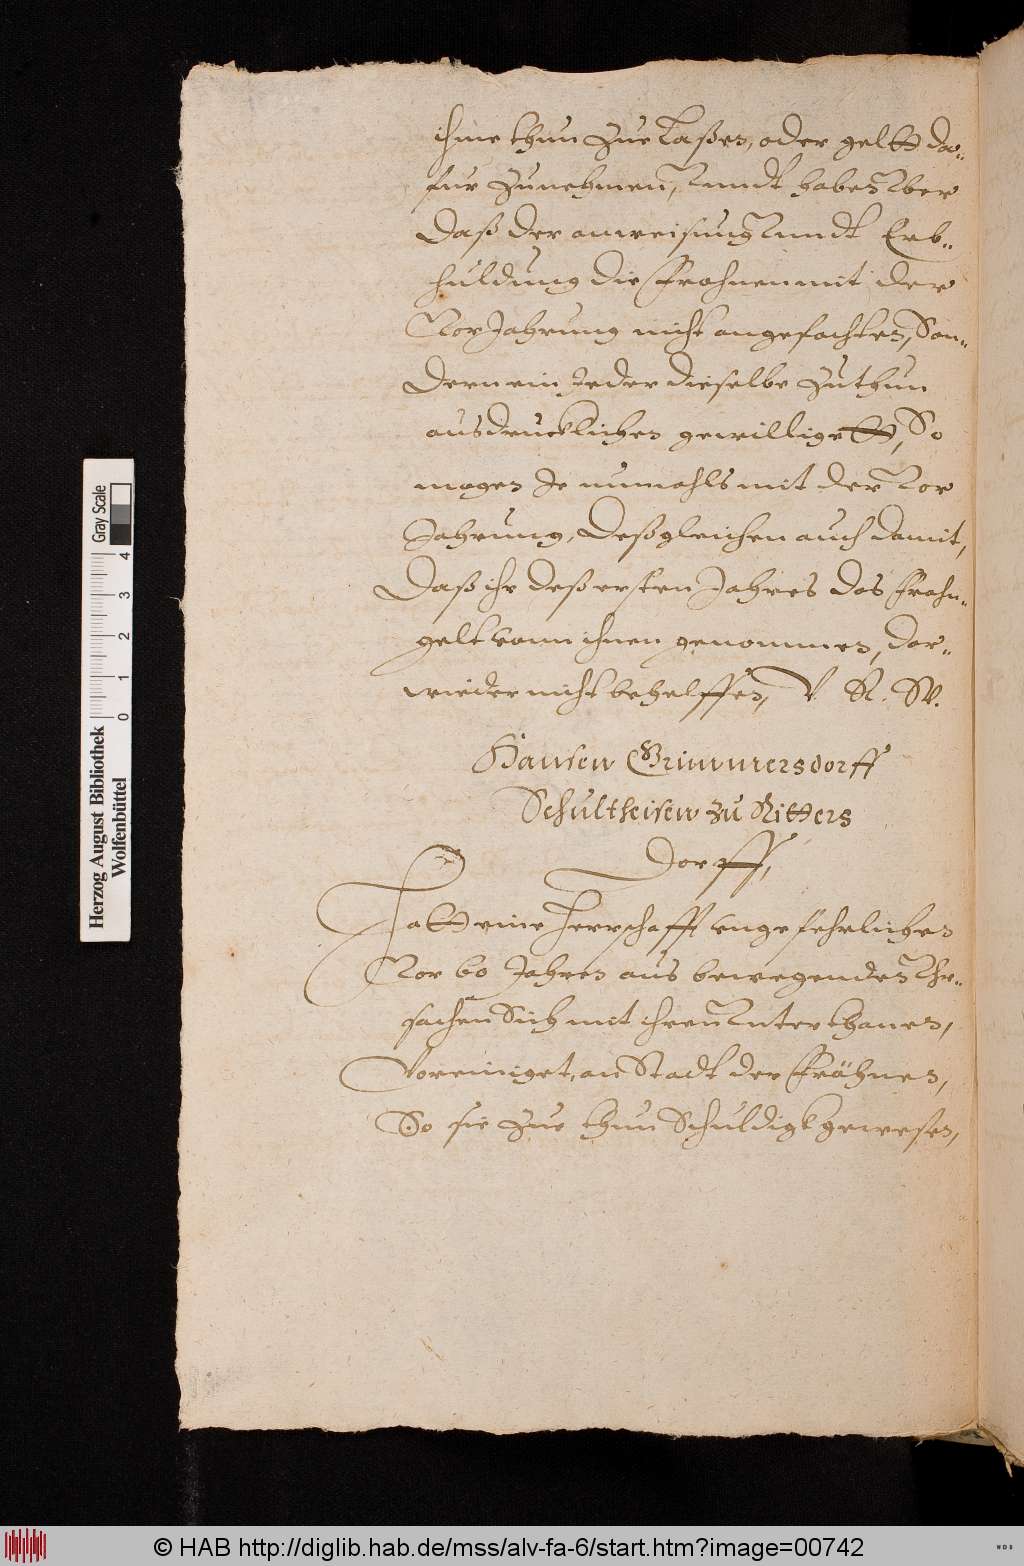 ihme thun zue laßen, oder geltt da-
fur zunehmen, Unndt haben Uber
daß der anweisung Unndt Erb-
huldung die Frohnen mit der
VorJahrung nicht angefochten, Son-
dern ein Jeder dieselbe zuthun
ausdrucklichen gewilligett, So
mogen Je numahls mit der Vor
Jahrung, Deßgleichen auch damit,
Daß ihr deß ersten Jahres das Frohn-
gelt vonn ihnen genommen, dar-
wieder nicht behelffen, V R. W.
Hansen Grimmersdorff
Schultheisen zu Ritters
Dorff,
Hatt eine Herrschafft ungefehrlichen
Vor 60 Jahren aus bewegenden Uhr-
sachen Sich mit ihren Unterthanen,
Voreiniget, an Stadt der Fröhnen,
So sie zue thun Schuldigk gewesen,
Herzog August Bibliothek
Wolfenbüttel
0 1 2 3 4
Gray Scale
© HAB http://diglib.hab.de/mss/alv-fa-6/start.htm?image=00742
WDB